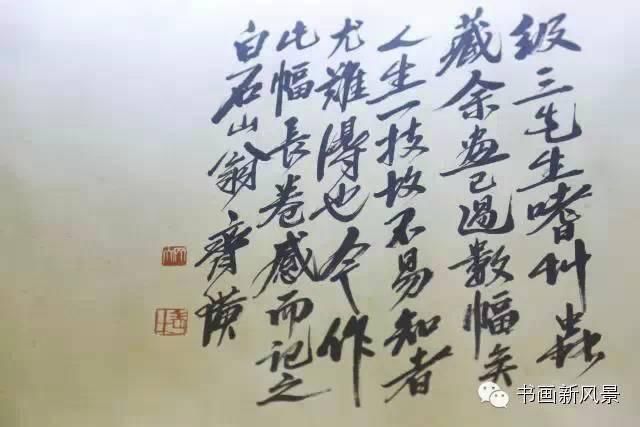 级三先生嗜艸蟲
藏余画已過數幅矣
人生一技故不易知者
尤難得也今作
此幅長卷感而记之
白石山翁齊璜
书画新风景